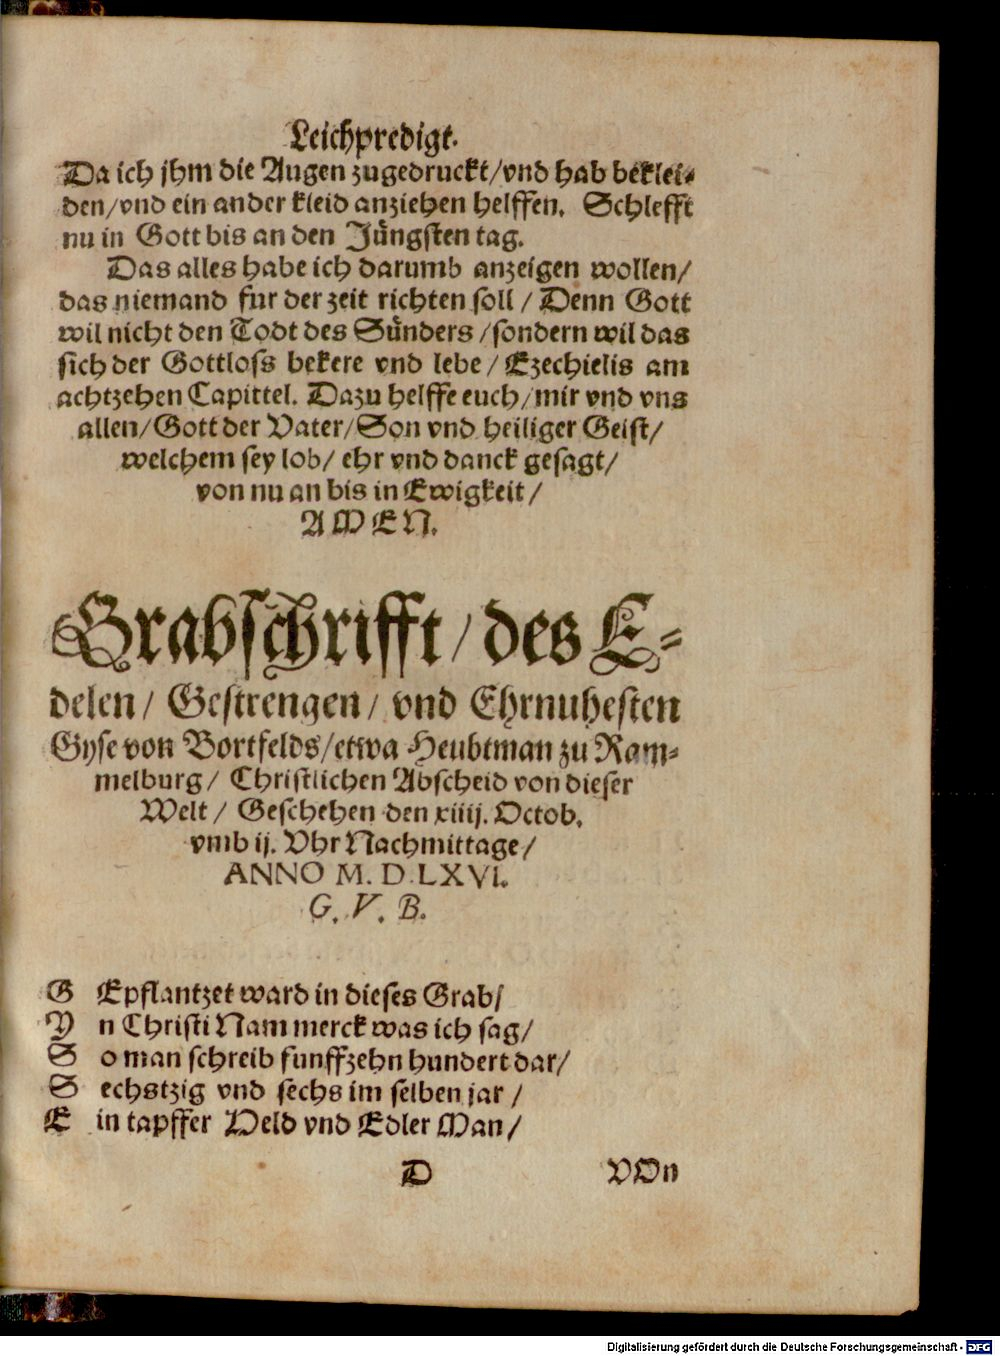 Leichpredigt.
Da ich jhm die Augen zugedruckt/vnd hab beklei-
den/vnd ein ander kleid anziehen helffen. Schlefft
nu in Gott bis an den Jüngsten tag.
Das alles habe ich darumb anzeigen wollen/
das niemand fur der zeit richten soll/ Denn Gott
wil nicht den Todt des Sünders/sondern wil das
sich der Gottloss bekere vnd lebe/ Ezechielis am
achtzehen Capittel. Dazu helffe euch/mir vnd vns
allen/Gott der Vater/Son vnd heiliger Geist/
welchem sey lob/ ehr vnd danck gesagt/
von nu an bis in Ewigkeit/
AMEN.
Grabschrifft/des E-
delen/ Gestrengen/ vnd Ehrnuhesten
Gyse von Bortfelds/etwa Heubtman zu Ram-
melburg/ Christlichen Abscheid von dieser
Welt/ Geschehen den xiiij. Octob.
vmb ij. Vhr Nachmittage/
ANNO M. D. LXVI.
G. V. B.
G Epflantzet ward in dieses Grab/
Y n Christi Nam merck was ich sag/
S o man schreib funffzehn hundert dar/
S echstzig vnd sechs im selben jar/
E in tapffer Veld vnd Edler Man/
D VOn
Digitalisierung gefördert durch die Deutsche Forschungsgemeinschaft - DFG